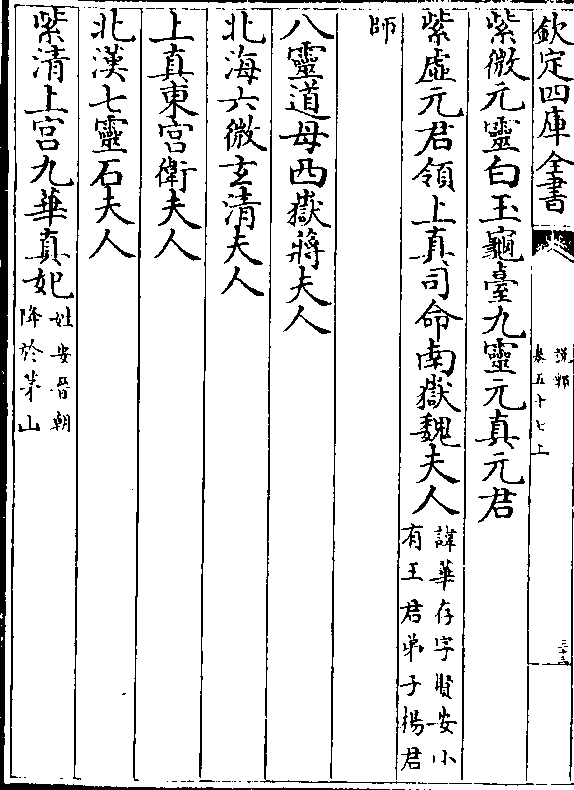 欽定四庫全書
說郛
卷五十七上
三十三
紫微元靈白玉龜臺九靈元真元君
紫虛元君領上真司命南嶽魏夫人
諱華存字賢安小
有王君弟子楊君
師
八靈道母西嶽蔣夫人
北海六微玄清夫人
上真東宮衛夫人
北漢七靈石夫人
紫清上宮九華真妃
姓安晉朝
降於茅山